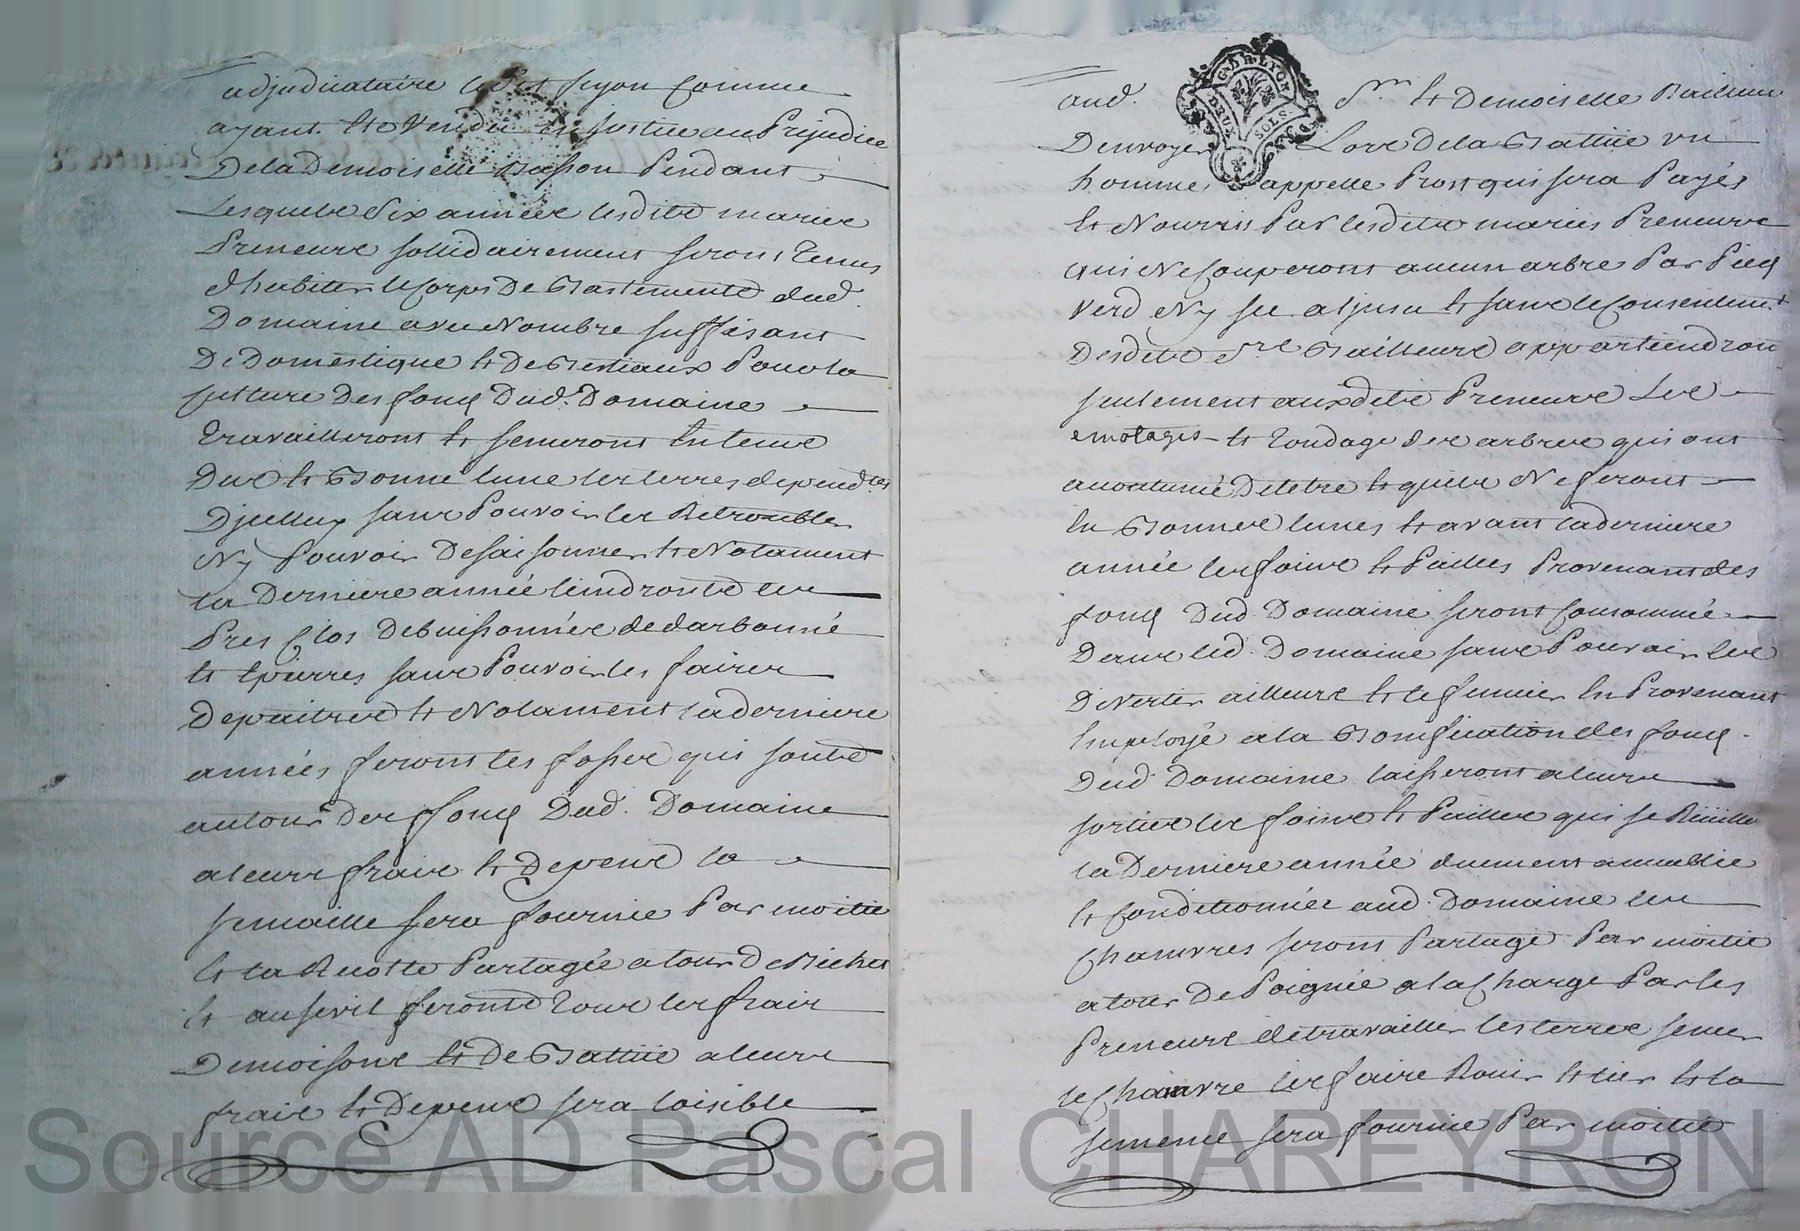 adjudicataire led. Sr Guyon Comme
ayant Ete Vendu en Justice au Prejudice
De la Demoiselle Basson Pendant
Lesquels Six années lesdits mariés
Preneurs sollidairement seront Tenus
d'habiter le Corps De Bastiments dud.
Domaine avec Nombre suffisant
De Domestique et De Bestiaux Pour la
Culture Des fonq Dud. Domaine
Travailleront et semeront En tems
Due et Bonne lune les terres dépendtes
D'jcelluy sans Pouvoir les Retroubler
Ny Pouvoir Desaisonner et Notament
La Derniere année tiendronts les
Pres Clos Debuissonnés dedarbonné
et Epierres sans Pouvoir les faires
Depaitres et Notament la derniere
années feront les fosses qui sonts
autour Des ffonq Dud. Domaine
a leurs frais et Depens la
semaille sera fournie Par moitié
Et la Recolte Partagée a tour De Bichet
et au sevil feronts Tous les frais
De moisons et De Battue a leurs
frais et Depens sera loisible
aud. Sr et Demoiselle Bailleurs
D'envoyer Lors De la Battue un
homme appelle Prost qui sera Payés
et Nourris Par lesdits mariés Preneurs
qui Ne Couperont aucun arbre Par Pieq
Verd Ny sec a Ijceux et sans le Consentemt
Desdits Srs Bailleurs appartiendront
seulement auxdits Preneurs Les
emotages et Tondage des arbres qui ont
acoutumé D'etetre et quils Ne feront
En Bonnes lunes et avant la derniere
année les foins et Pailles Provenant des
fonq Dud. Domaine seront Consommés
Dans led. Domaine sans Pouvoir les
Divertir ailleurs et le fumier En Provenant
Employé a la Bonification des fonq
Dud. Domaine laisseront a leurs
sorties les foins et Pailles qui se Reuille
la Derniere année duement
et Conditionnée aud. Domaine les
Chanvres seront Partagé Par moitié
a tour De Poignée a la Charge Par les
Preneurs de travailler les terres semer
le Chanvre les faire Rouir et tier et la
semence sera fournie Par moitié
G.DE LYON
DEUX SOLS
Source AD Pascal CHAREYRON